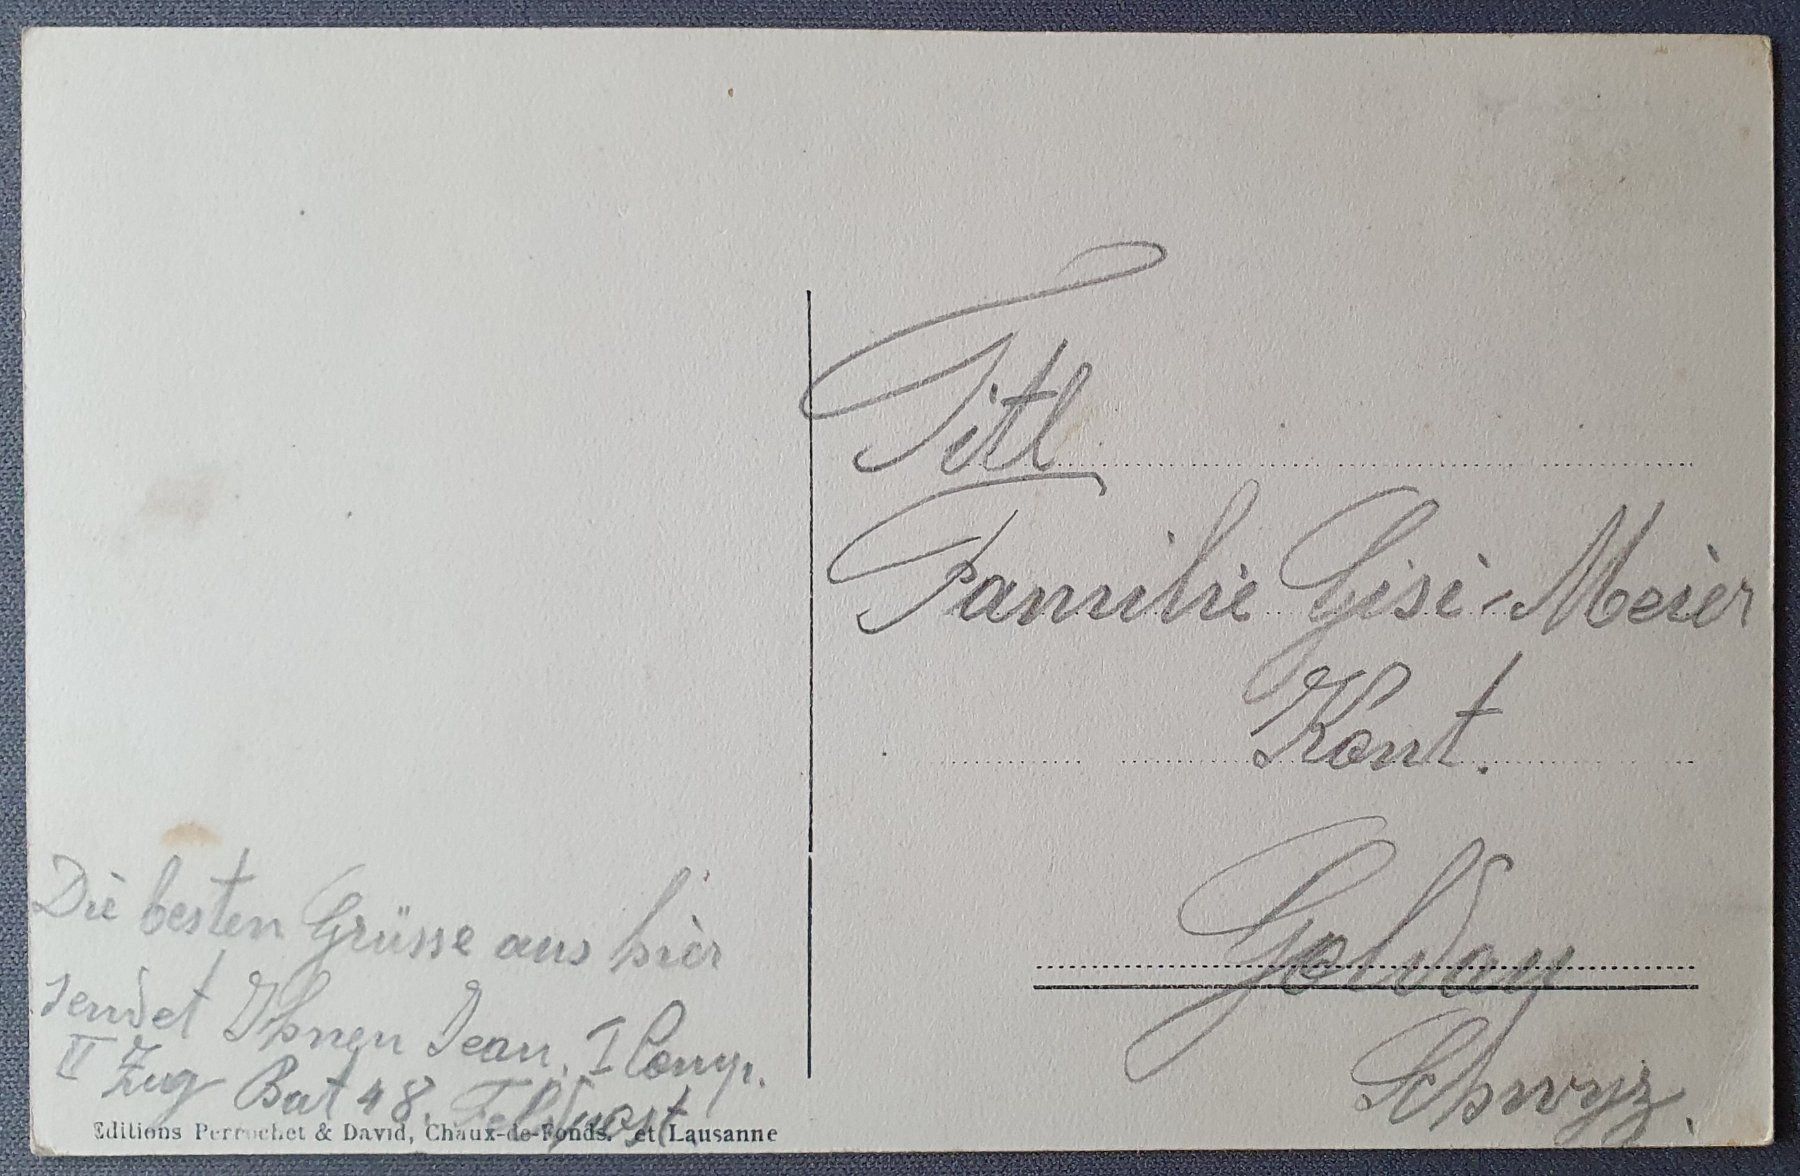 Titl
Familie Gisi-Meier
Kont.
Golday
Schwyz.
Die besten Grüsse aus hier
sendet Ihnen Jean. I Comp.
II Zug Bat 48. Feldpost
Editions Perrochet & David, Chaux-de-Fonds. et Lausanne